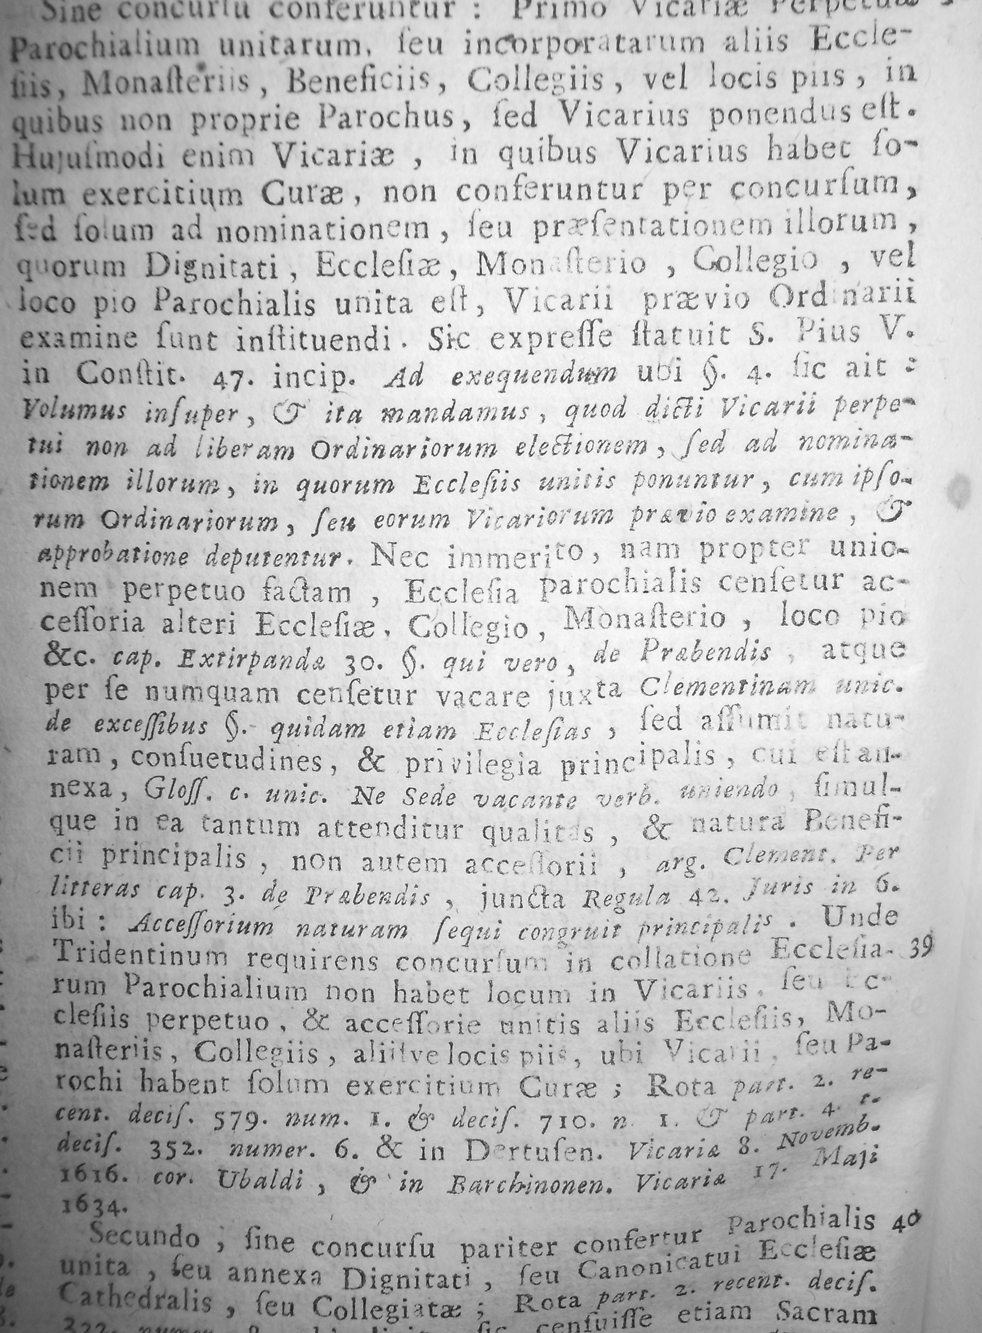 Sine concursu conferuntur : Primo Vicariæ Perpetuæ
Parochialium unitarum, ſeu incorporatarum aliis Eccle-
ſiis, Monaſteriis, Beneficiis, Collegiis, vel locis piis, in
quibus non proprie Parochus, ſed Vicarius ponendus eſt.
Hujuſmodi enim Vicariæ, in quibus Vicarius habet ſo-
lum exercitium Curæ, non conferuntur per concurſum,
ſed ſolum ad nominationem, ſeu præſentationem illorum,
quorum Dignitati, Eccleſiæ, Monaſterio, Collegio, vel
loco pio Parochialis unita eſt, Vicarii prævio Ordinarii
examine ſunt inſtituendi. Sic expreſſe ſtatuit S. Pius V.
in Conſtit. 47. incip. Ad exequendum ubi §. 4. ſic ait :
Volumus inſuper, & ita mandamus, quod dicti Vicarii perpe-
tui non ad liberam Ordinariorum electionem, ſed ad nomina-
tionem illorum, in quorum Eccleſiis unitis ponuntur, cum ipſo-
rum Ordinariorum, ſeu eorum Vicariorum prævio examine, &
approbatione deputentur. Nec immerito, nam propter unio-
nem perpetuo factam, Eccleſia Parochialis cenſetur ac-
ceſſoria alteri Eccleſiæ, Collegio, Monaſterio, loco pio
&c. cap. Extirpandæ 30. §. qui vero, de Præbendis, atque
per ſe numquam cenſetur vacare juxta Clementinam unic.
de exceſſibus §. quidam etiam Eccleſias, ſed aſſumit natu-
ram, conſuetudines, & privilegia principalis, cui eſt an-
nexa, Gloſſ. c. unic. Ne Sede vacante verb. uniendo, ſimul-
que in ea tantum attenditur qualitas, & natura Benefi-
cii principalis, non autem acceſſorii, arg. Clement. Per
litteras cap. 3. de Præbendis, juncta Regula 42. Juris in 6.
ibi : Acceſſorium naturam ſequi congruit principalis. Unde
Tridentinum requirens concurſum in collatione Eccleſia- 39
rum Parochialium non habet locum in Vicariis, ſeu Ec-
cleſiis perpetuo, & acceſſorie unitis aliis Eccleſiis, Mo-
naſteriis, Collegiis, aliiſve locis piis, ubi Vicarii, ſeu Pa-
rochi habent ſolum exercitium Curæ ; Rota part. 2. re-
cent. deciſ. 579. num. 1. & deciſ. 710. n. 1. & part. 4. r.
deciſ. 352. numer. 6. & in Dertuſen. Vicariæ 8. Novemb.
1616. cor. Ubaldi, & in Barchinonen. Vicariæ 17. Maji
1634.
Secundo ; ſine concurſu pariter confertur Parochialis 40
unita, ſeu annexa Dignitati, ſeu Canonicatui Eccleſiæ
Cathedralis, ſeu Collegiatæ ; Rota part. 2. recent. deciſ.
ſic cenſuiſſe etiam Sacram